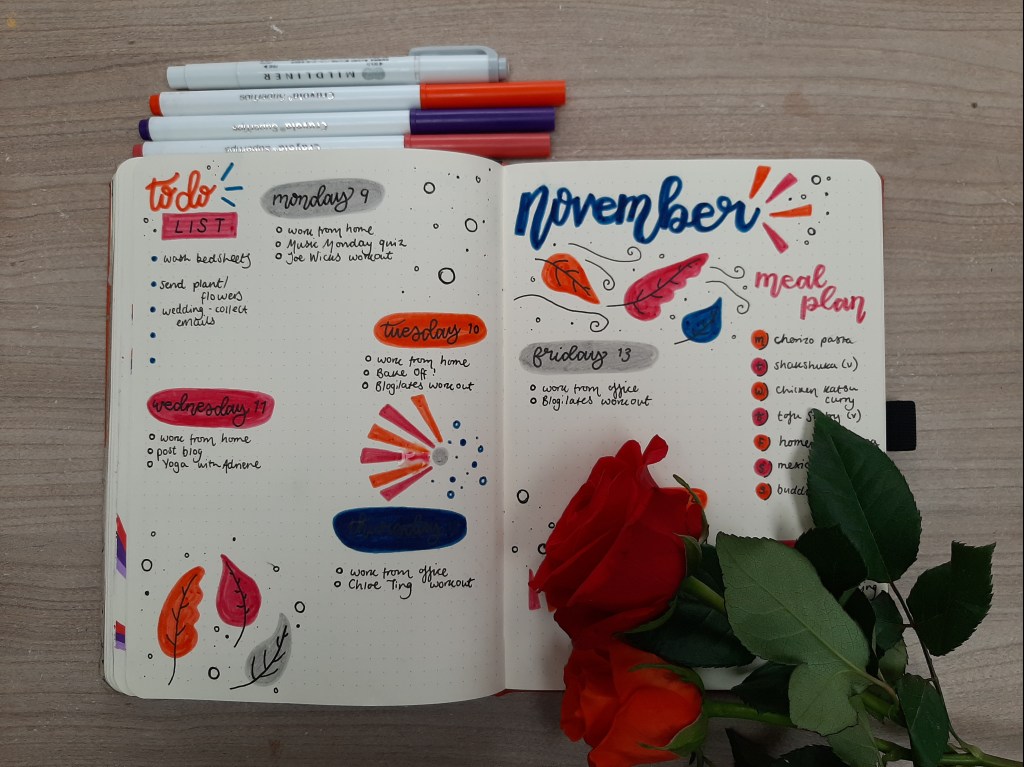 MILDLINER
Crayola SuperTips
Crayola SuperTips
Crayola SuperTips
to do
LIST
wash bedsheets
send plant/
flowers
wedding - collect
emails
monday 9
work from home
Music Monday quiz
Joe Wicks workout
tuesday 10
work from home
Bake Off!
Blogilates workout
wednesday 11
work from home
post blog
Yoga with Adriene
thursday
work from office
Chloe Ting workout
november
friday 13
work from office
Blogilates workout
meal
plan
m chorizo pasta
t shakshuka (v)
w chicken katsu
curry
t tofu (v)
f
s
s